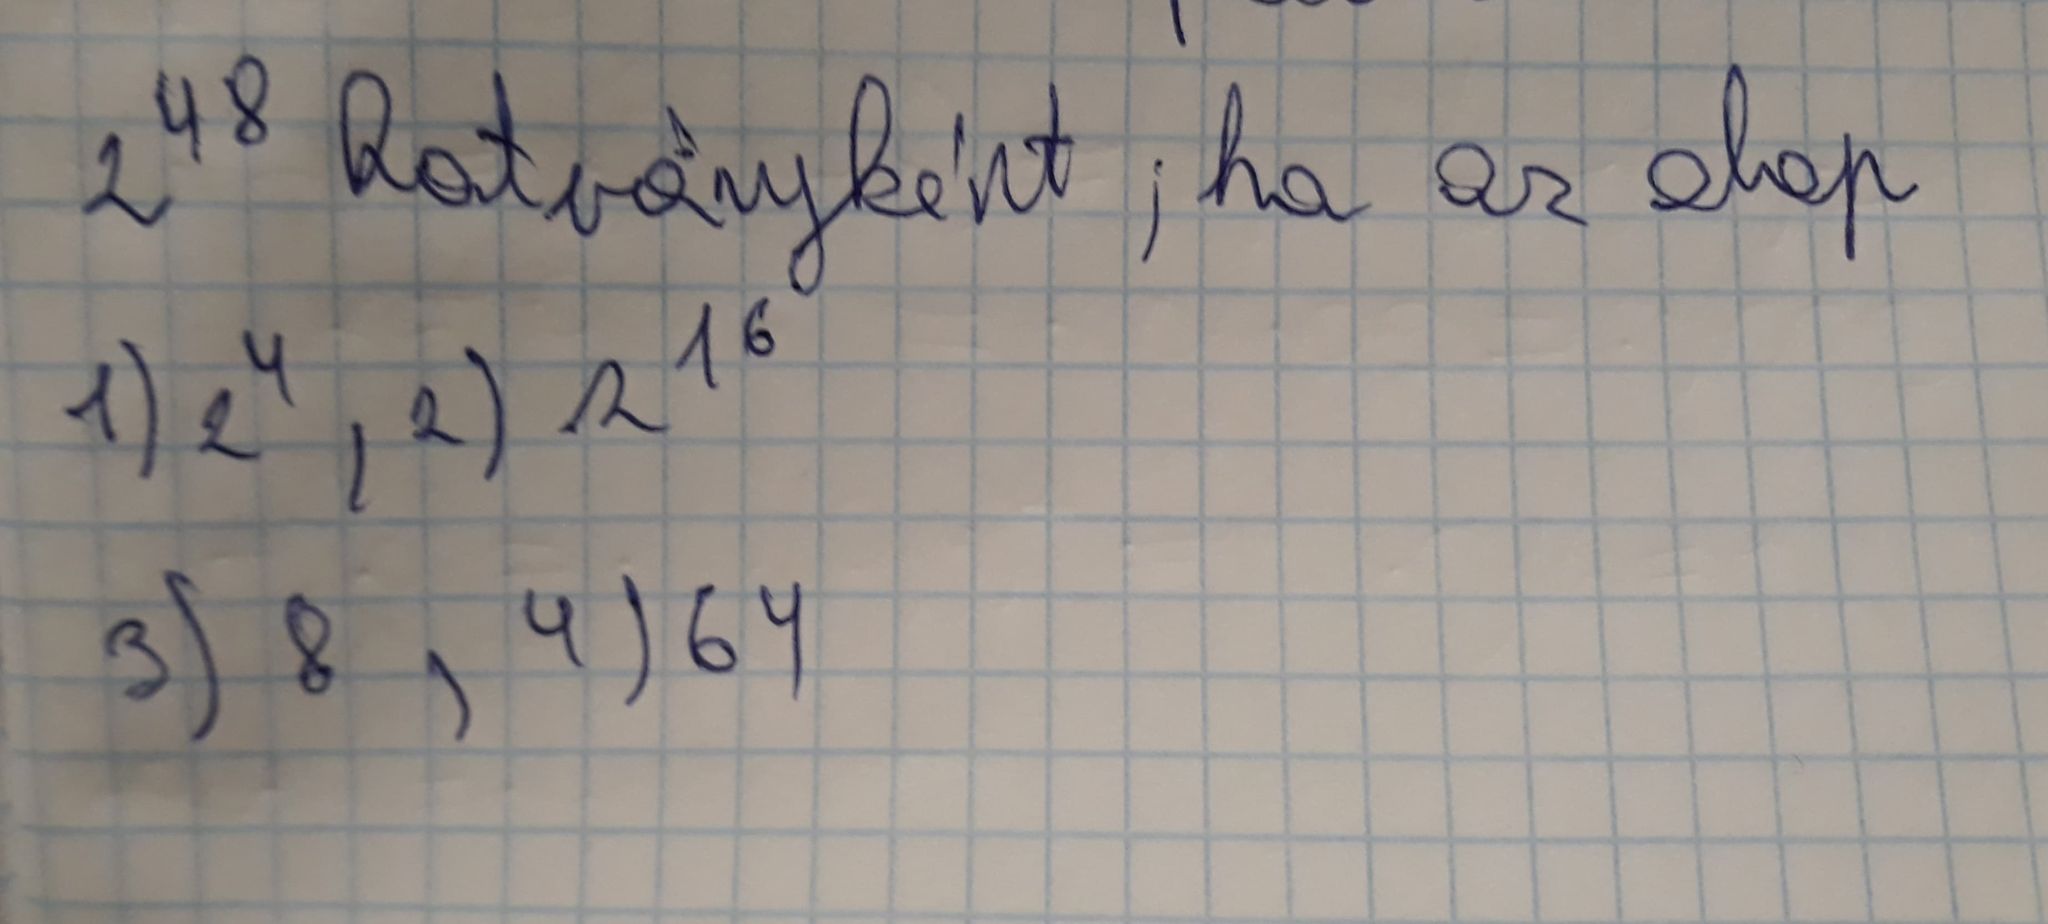 2^48 hatványként, ha az alap
1) 2^4, 2) 2^16
3) 8, 4) 64